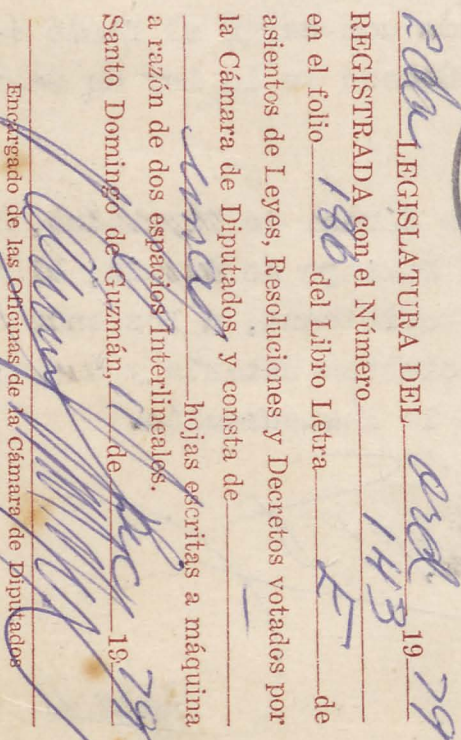 2da LEGISLATURA DEL ord. 1979
REGISTRADA con el Número 143
en el folio 186 del Libro Letra E de
asientos de Leyes, Resoluciones y Decretos votados por
la Cámara de Diputados, y consta de
una hojas escritas a máquina
a razón de dos espacios interlineales.
Santo Domingo de Guzmán, 11 de Dic 1979
Encargado de las Oficinas de la Cámara de Diputados